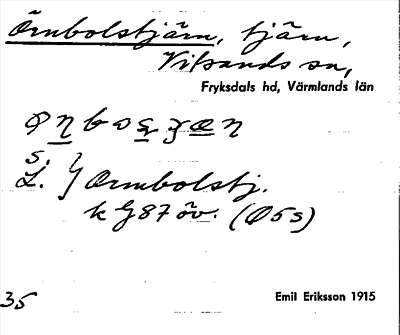 Örnbolstjärn, tjärn,
Vitsands sn,
Fryksdals hd, Värmlands län
S.
L. } Ørnbolstj.
k G87 öv. (Ø5s)
35
Emil Eriksson 1915